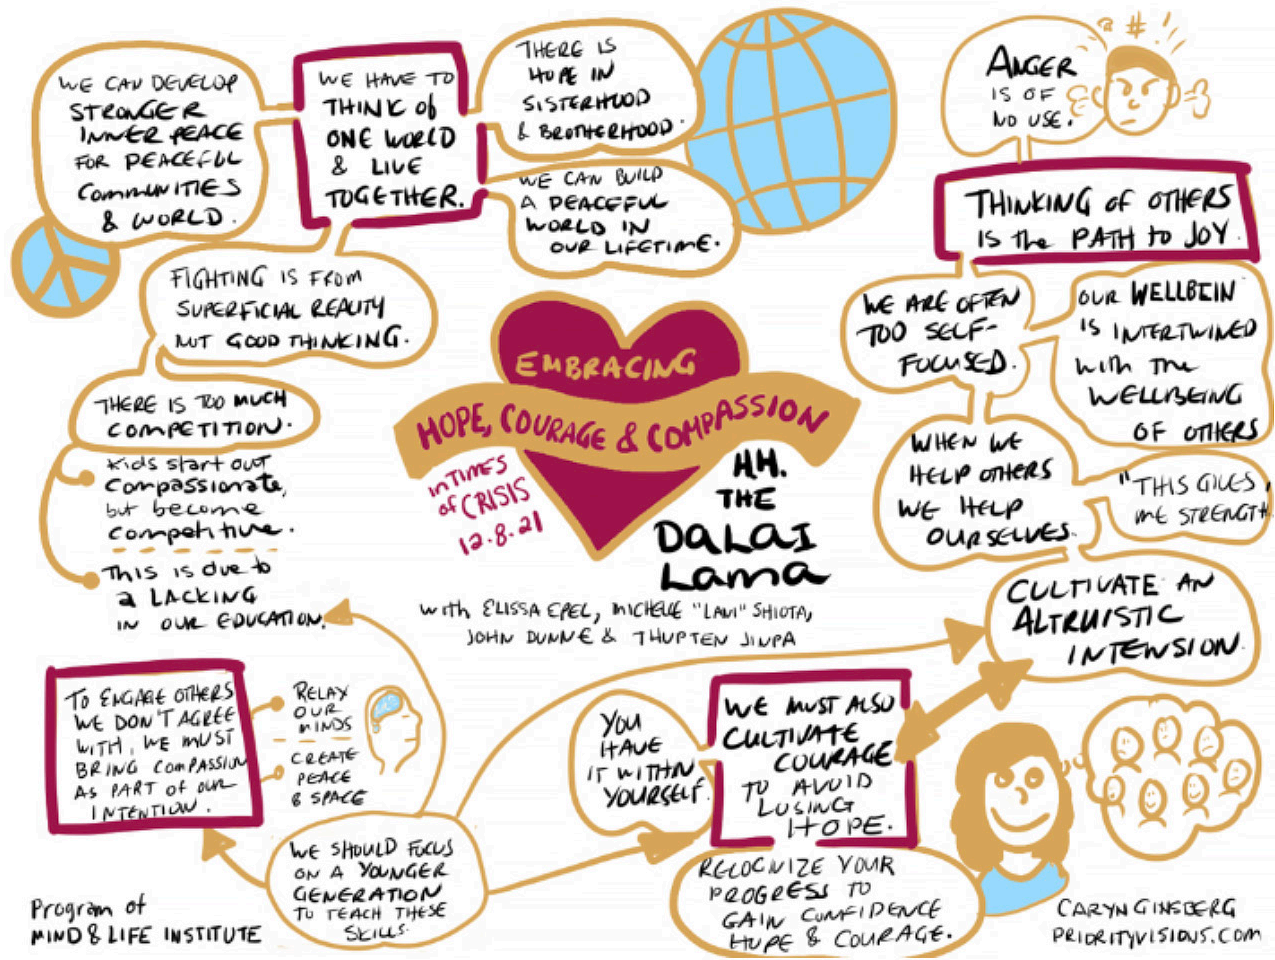 WE CAN DEVELOP
STRONGER
INNER PEACE
FOR PEACEFUL
COMMUNITIES
& WORLD.
WE HAVE TO
THINK of
ONE WORLD
& LIVE
TOGETHER.
THERE IS
HOPE IN
SISTERHOOD
& BROTHERHOOD.
WE CAN BUILD
A PEACEFUL
WORLD IN
OUR LIFETIME.
FIGHTING IS FROM
SUPERFICIAL REALITY
NOT GOOD THINKING.
THERE IS TOO MUCH
COMPETITION.
Kids start out
compassionate,
but become
competitive.
This is due to
a LACKING
IN OUR EDUCATION.
EMBRACING
HOPE, COURAGE & COMPASSION
in TIMES
of CRISIS
12.8.21
H.H.
THE
DaLaI
Lama
with ELISSA EPEL, MICHELLE "LANI" SHIOTA,
JOHN DUNNE & THUPTEN JINPA
@ # !
ANGER
IS OF
NO USE.
THINKING of OTHERS
IS the PATH to JOY.
WE ARE OFTEN
TOO SELF-
FOCUSED.
OUR WELLBEIN
IS INTERTWINED
with the
WELLBEING
OF OTHERS
WHEN WE
HELP OTHERS
WE HELP
OURSELVES.
"THIS GIVES
ME STRENGTH
CULTIVATE AN
ALTRUISTIC
INTENSION.
TO ENGAGE OTHERS
WE DON'T AGREE
WITH, WE MUST
BRING COMPASSION
AS PART OF OUR
INTENTION.
RELAX
OUR
MINDS
CREATE
PEACE
& SPACE
WE SHOULD FOCUS
ON A YOUNGER
GENERATION
TO TEACH THESE
SKILLS.
YOU
HAVE
IT WITHIN
YOURSELF.
WE MUST ALSO
CULTIVATE
COURAGE
TO AVOID
LOSING
HOPE.
RECOGNIZE YOUR
PROGRESS TO
GAIN CONFIDENCE
HOPE & COURAGE.
Program of
MIND & LIFE INSTITUTE
CARYN GINSBERG
PRIORITYVISIONS.COM